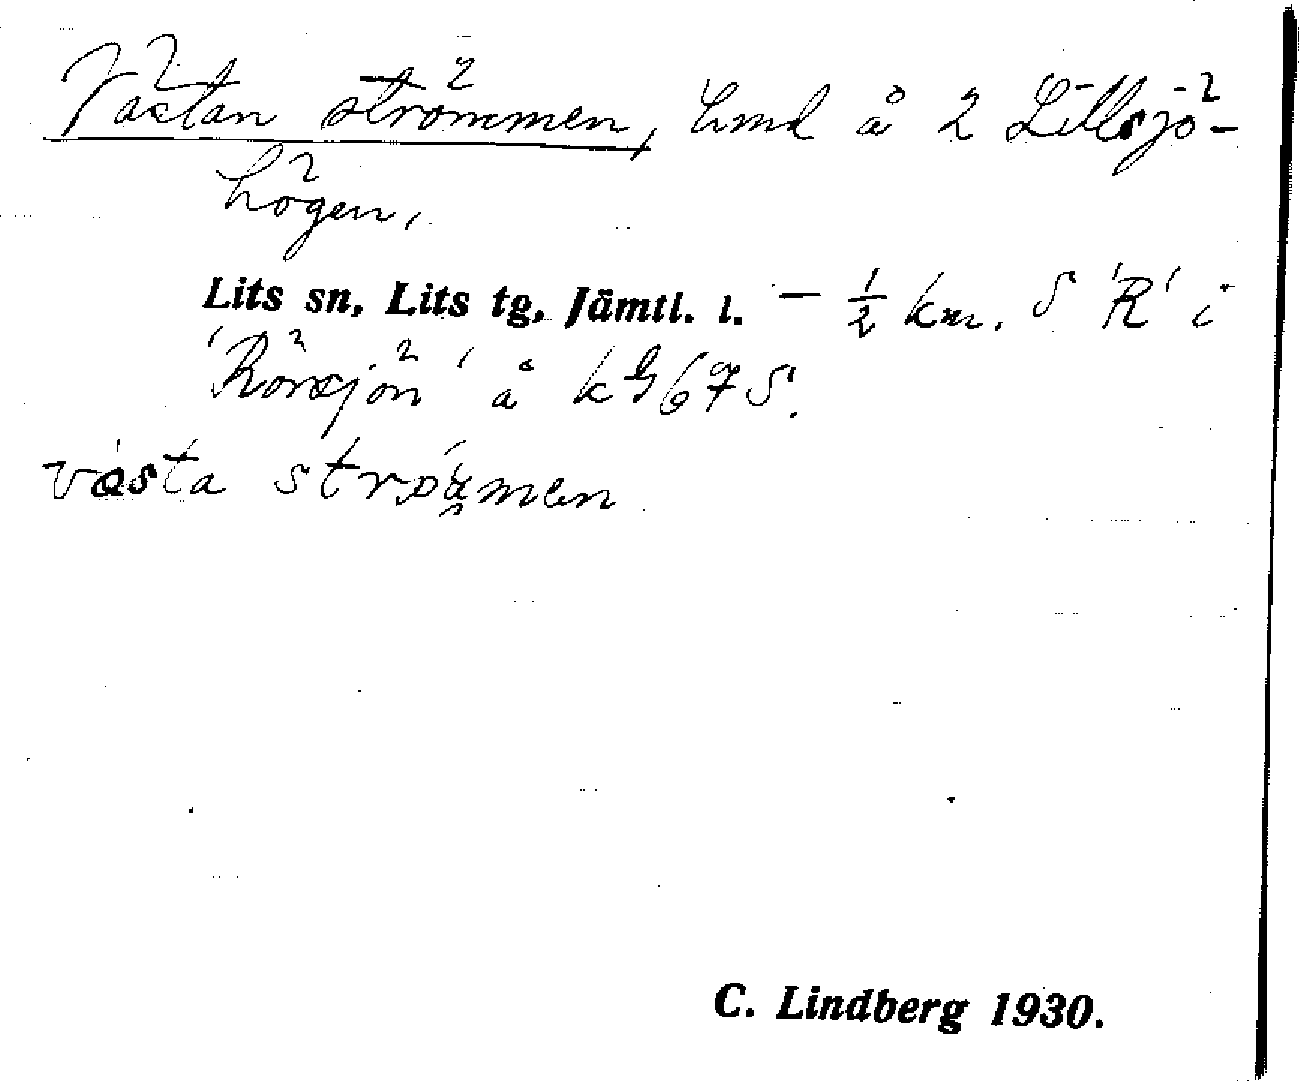 Västan strömmen, hmd å 2 Lillsjö-
högen,
Lits sn, Lits tg, Jämtl. l. – ½ km. S 'R' i
'Rönsjön' å kbl 67 S.
vásta stró̈mmen
C. Lindberg 1930.